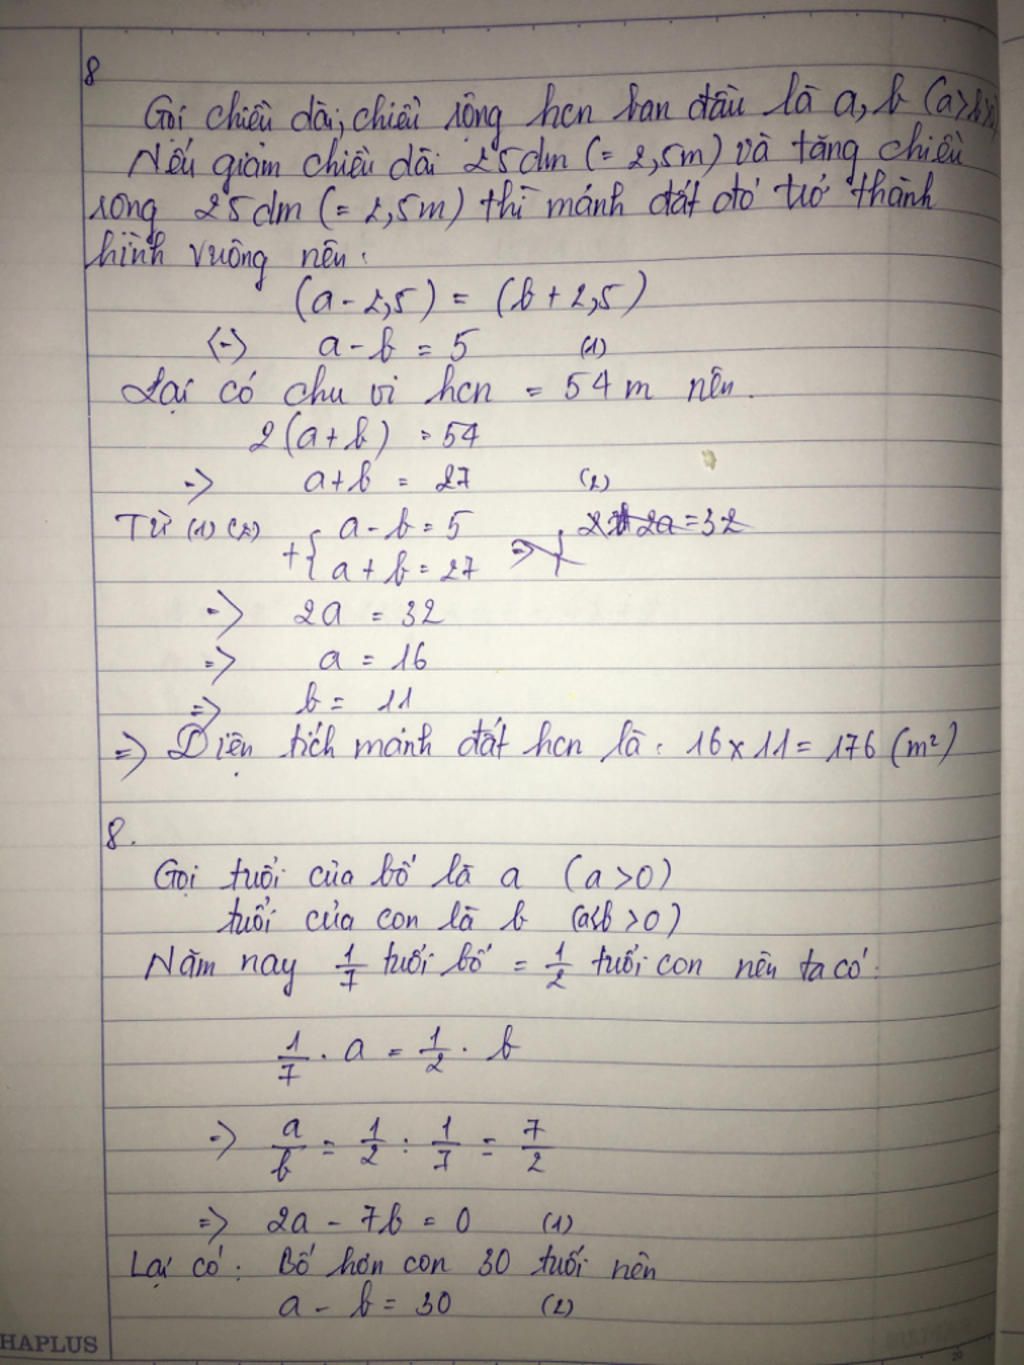 8
Gọi chiều dài, chiều rộng hcn ban đầu là a, b (a>b
Nếu giảm chiều dài 25dm (= 2,5m) và tăng chiều
rộng 25dm (= 2,5m) thì mảnh đất đó trở thành
hình vuông nên:
(a - 2,5) = (b + 2,5)
(-) a - b = 5 (1)
Lại có chu vi hcn = 54 m nên.
2(a + b) = 54
=> a + b = 27 (2)
Từ (1) (2) +{ a - b = 5 => { 2a = 32
a + b = 27
=> 2a = 32
=> a = 16
=> b = 11
=> Diện tích mảnh đất hcn là: 16 x 11 = 176 (m²)
8.
Gọi tuổi của bố là a (a > 0)
tuổi của con là b (a<b > 0)
Năm nay 1/7 tuổi bố = 1/2 tuổi con nên ta có:
1/7 . a = 1/2 . b
=> a/b = 1/2 : 1/7 = 7/2
=> 2a - 7b = 0 (1)
Lại có: Bố hơn con 30 tuổi nên
a - b = 30 (2)
HAPLUS